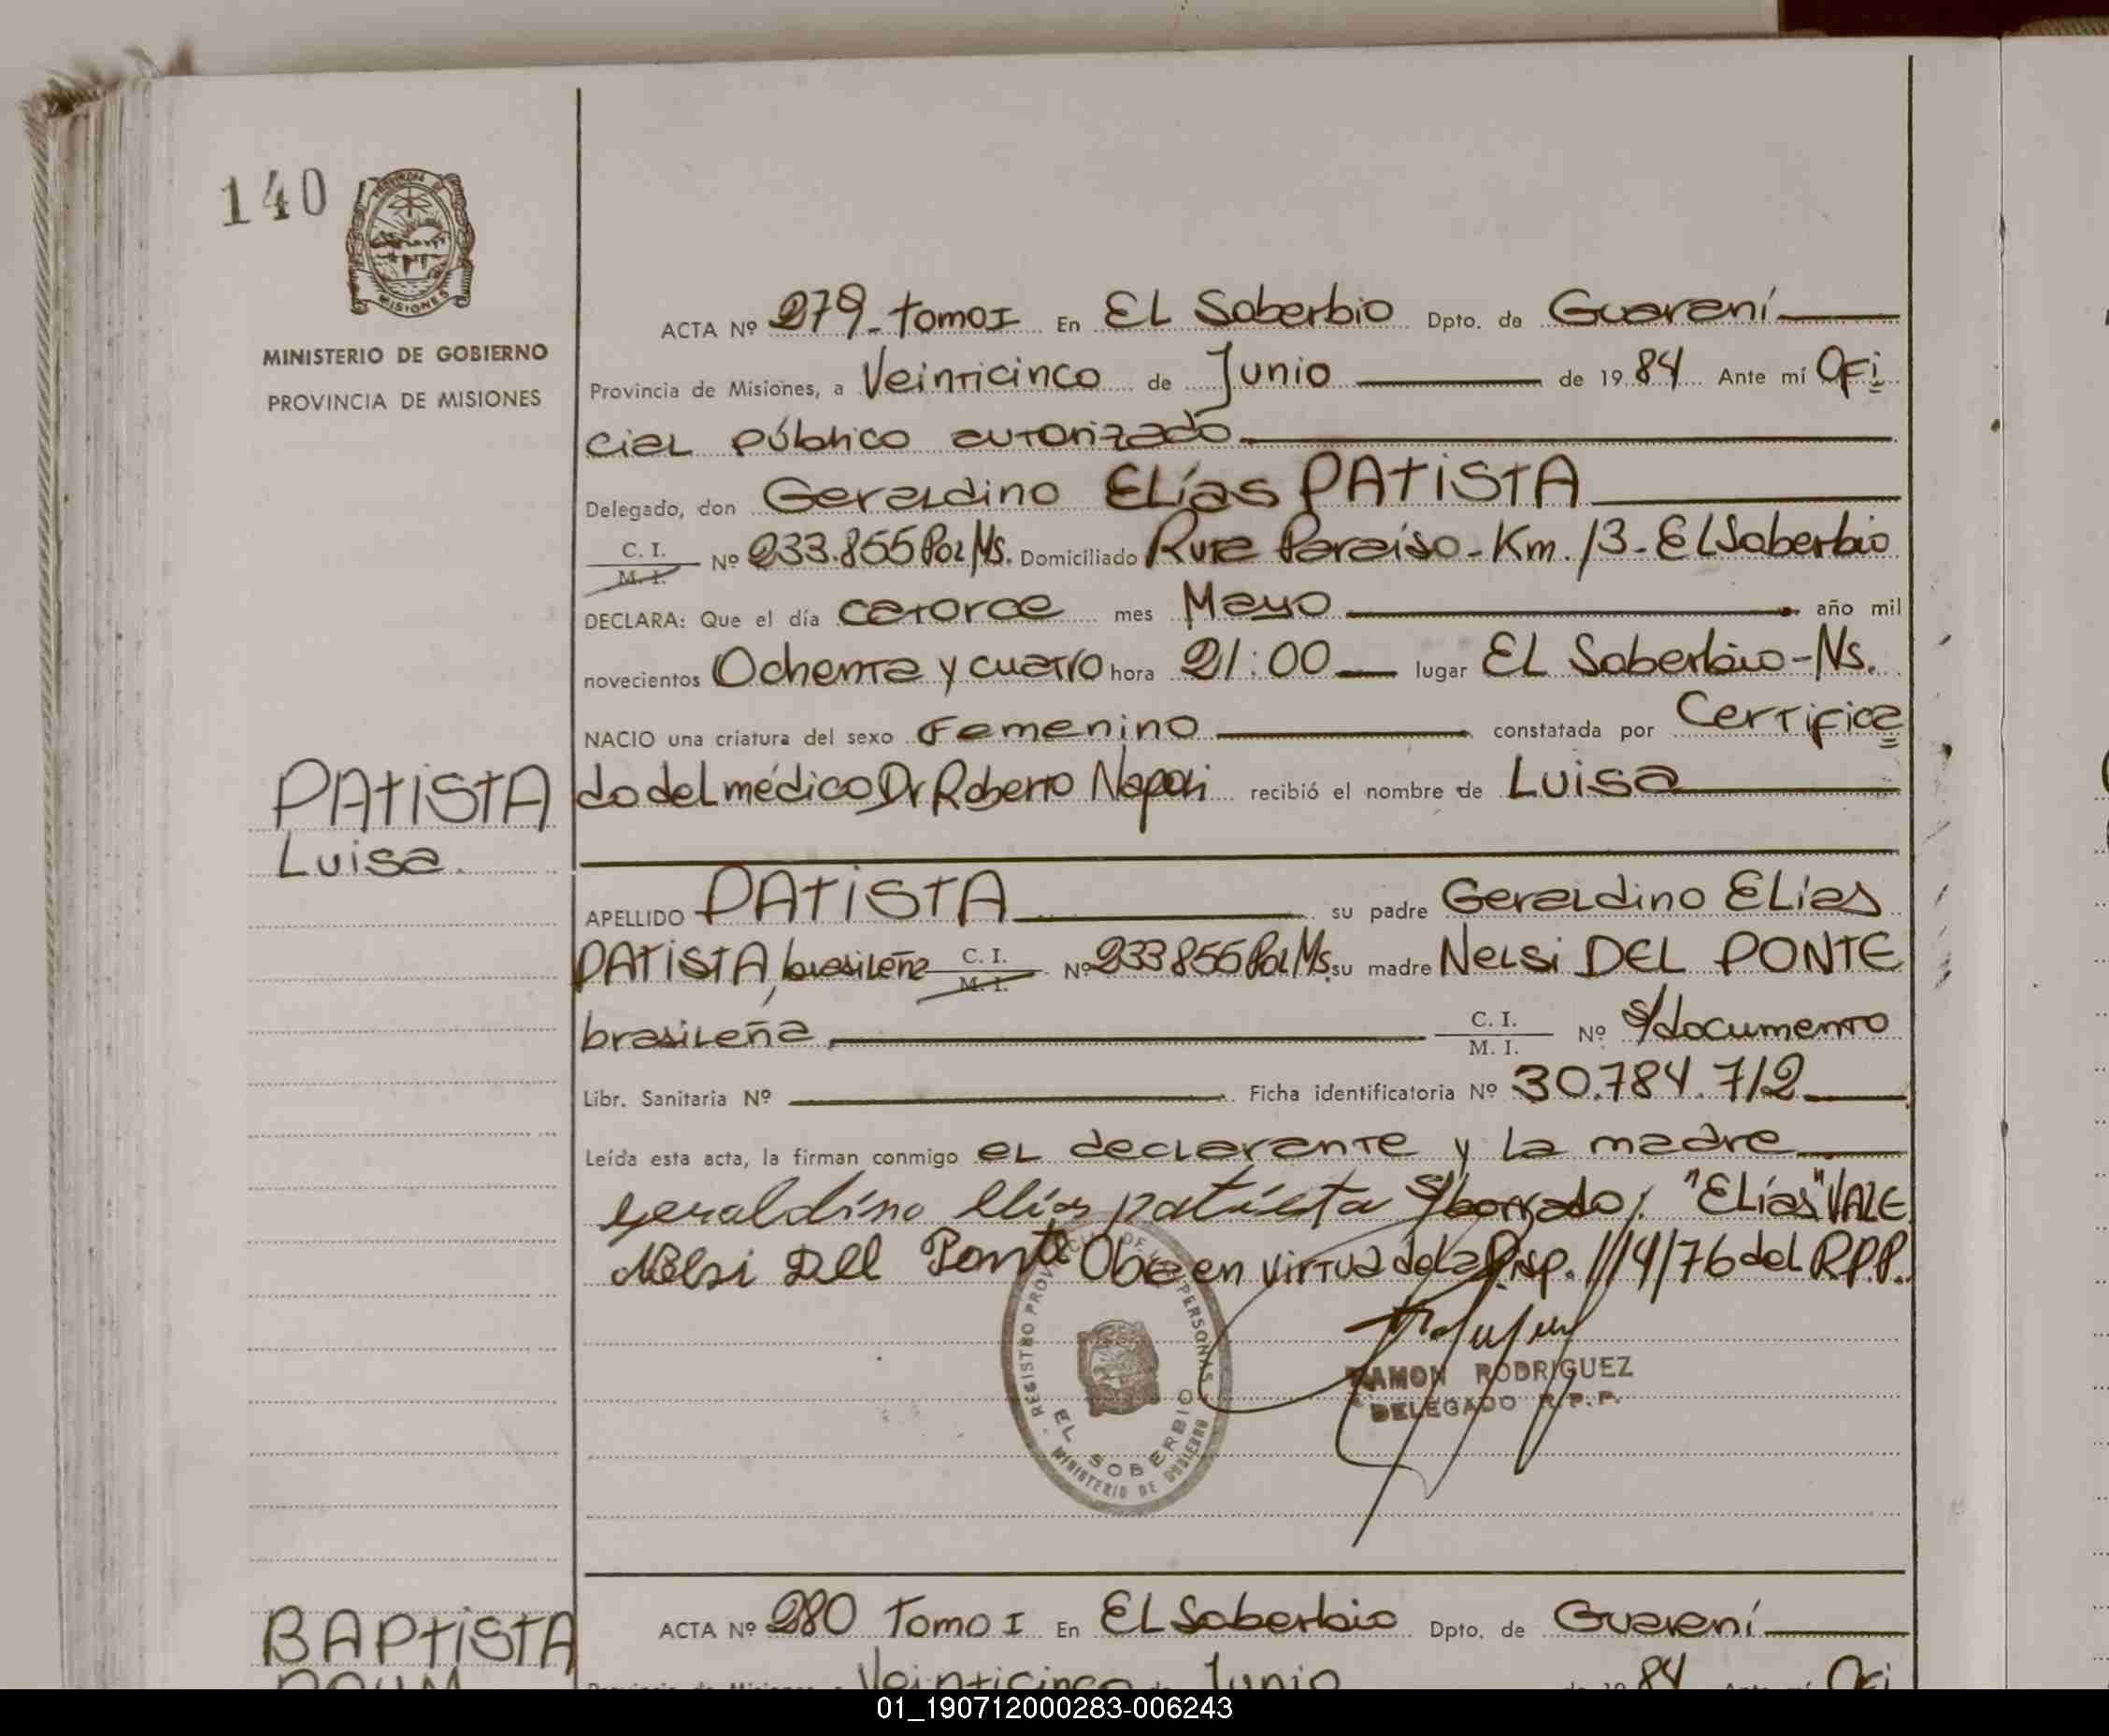 140
PROVINCIA DE
MISIONES
MINISTERIO DE GOBIERNO
PROVINCIA DE MISIONES
ACTA Nº 279- tomo I En EL Soberbio Dpto. de Guaraní
Provincia de Misiones, a Veinticinco de Junio de 1984 Ante mí Ofi
cial público autorizado
Delegado, don Geraldino ELías PATISTA
C. I. M. I. Nº 233.855 Pol Ms. Domiciliado Ruta Paraiso - Km. 13 - EL Soberbio
DECLARA: Que el día catorce mes Mayo año mil
novecientos Ochenta y cuatro hora 21:00 lugar EL Soberbio - Ms.
NACIO una criatura del sexo Femenino constatada por Certifica
do del médico Dr Roberto Napoli recibió el nombre de Luisa
PATISTA
Luisa.
APELLIDO PATISTA su padre Geraldino ELías
PATISTA, brasileña C. I. M. I. Nº 233855 Pol Ms. su madre Nelsi DEL PONTE
brasileña, C. I. M. I. Nº s/documento
Libr. Sanitaria Nº Ficha identificatoria Nº 30.784.712
Leída esta acta, la firman conmigo el declarante y la madre
geraldino elias patista s/borrado/. "ELías" VALE
Nelsi Dell Ponte Obra en virtud de la Disp. 114/76 del R.P.P.
REGISTRO PROVINCIAL DE LAS PERSONAS
EL SOBERBIO
MINISTERIO DE GOBIERNO
RAMON RODRIGUEZ
DELEGADO R.P.P.
BAPTISTA
ACTA Nº 280 Tomo I En EL Soberbio Dpto. de Guaraní
Provincia de Misiones, a Veinticinco de Junio de 1984 Ante mí Ofi
01_190712000283-006243